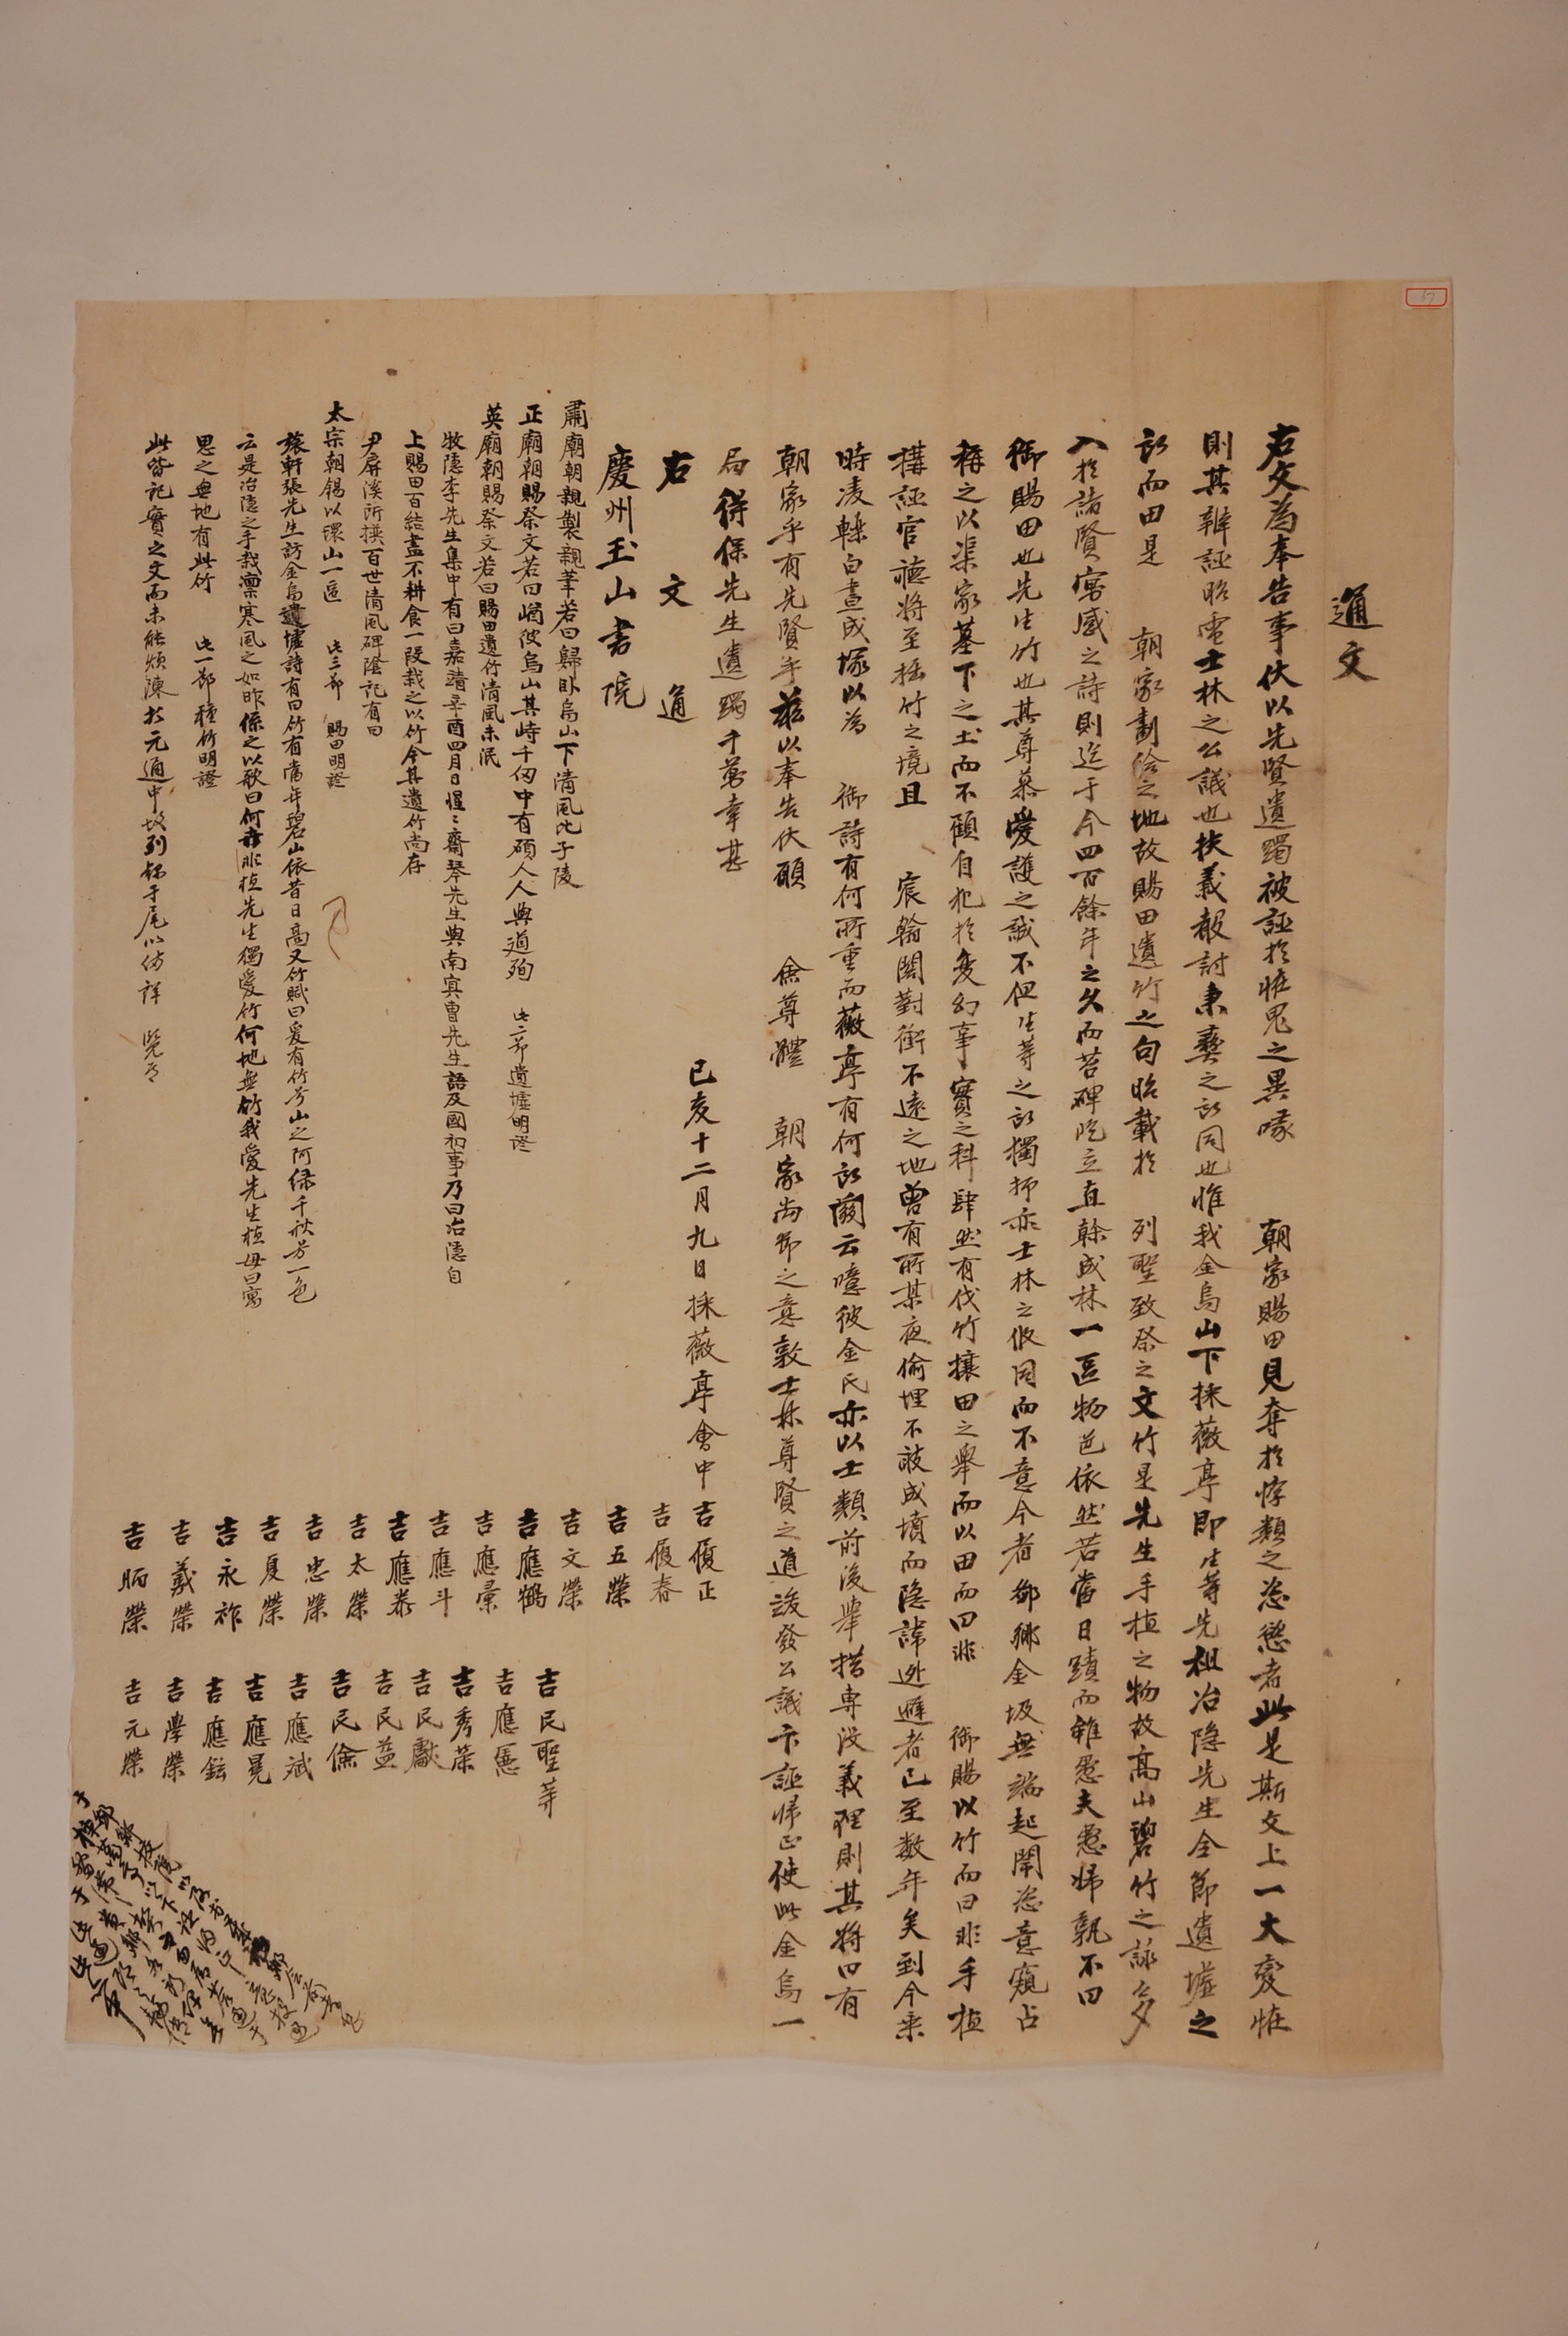 通文
右文爲奉告事伏以先賢遺躅被誣於恠鬼之異喙 朝家賜田見奪於悖類之恣慾者此是斯文上一大變恠
則其辨誣昭雪士林之公議也扶義報討秉彝之所同也惟我金烏山下採薇亭卽生等先祖冶隱先生全節遺墟之
所而田是 朝家劃給之地故賜田遺竹之句昭載於 列聖致祭之文竹是先生手植之物故高山碧竹之詠多
入於諸賢寓感之詩則迄于今四百餘年之久而苔碑屹立直榦成林一區物色依然若當日蹟而雖愚夫愚婦孰不曰
御賜田也先生竹也其尊慕愛護之誠不但生等之所獨抑亦士林之攸同而不意今者鄉鄉金圾無端起鬧恣意窺占
稱之以渠家墓下之土而不顧自犯於變幻事實之科肆然有伐竹攘田之擧而以田而曰非 御賜以竹而曰非手植
構誣官聽將至極竹之境且 宸翰閣對衝不遠之地曾有所某夜偷埋不敢成墳而隱諱逃避者已至數年矣到今乘
時凌轢白晝成塚以爲 御詩有何所重而薇亭有何所關云噫彼金氏亦以士類前後擧措專沒義理則其將曰有
朝家乎有先賢乎玆以奉告伏願 僉尊體 朝家尙節之意敦士林尊賢之道峻發公議卞誣歸正使此金烏一
局得保先生遺躅千萬幸甚
己亥十二月九日採薇亭會中
右文通
慶州玉山書院
肅廟朝親製親筆若曰歸臥烏山下淸風比子陵
正廟朝賜祭文若曰嶠彼烏山其峙千仞中有碩人人與道殉 此二節遺墟明證
英廟朝賜祭文若曰賜田遺竹淸風未泯
牧隱李先生集中有曰嘉靖辛酉四月日惺惺齋琴先生與南冥曺先生語及國初事乃曰冶隱自
上賜田百結盡不耕食一段栽之以竹今其遺竹尙存
尹屛溪所撰百世淸風碑陰記有曰
太宗朝錫以環山一區 此三節 賜田明證
旅軒張先生訪金烏遺墟詩有曰竹有當年碧山依昔日高又竹賦曰爰有竹兮山之阿綠千秋芳一色
云是冶隱之手栽凜寒風之如昨係之以歌曰何卉非植先生獨愛竹何地無竹我愛先生植毋曰寓
思之無地有此竹 此一節種竹明證
此皆記實之文而未能煩陳於元通中故列錄于尾以備詳 覽焉
吉履正
吉履春
吉五榮
吉文榮
吉應鶴
吉應彙
吉應斗
吉應泰
吉太榮
吉忠榮
吉夏榮
吉永祚
吉義榮
吉炳榮
吉民聖等
吉應愿
吉秀榮
吉民獻
吉民益
吉民儉
吉應斌
吉應晃
吉應鉉
吉學榮
吉元榮